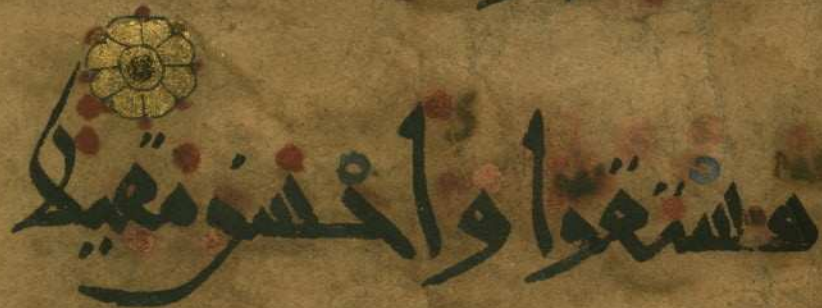 مستقرا واحسن مقيلا